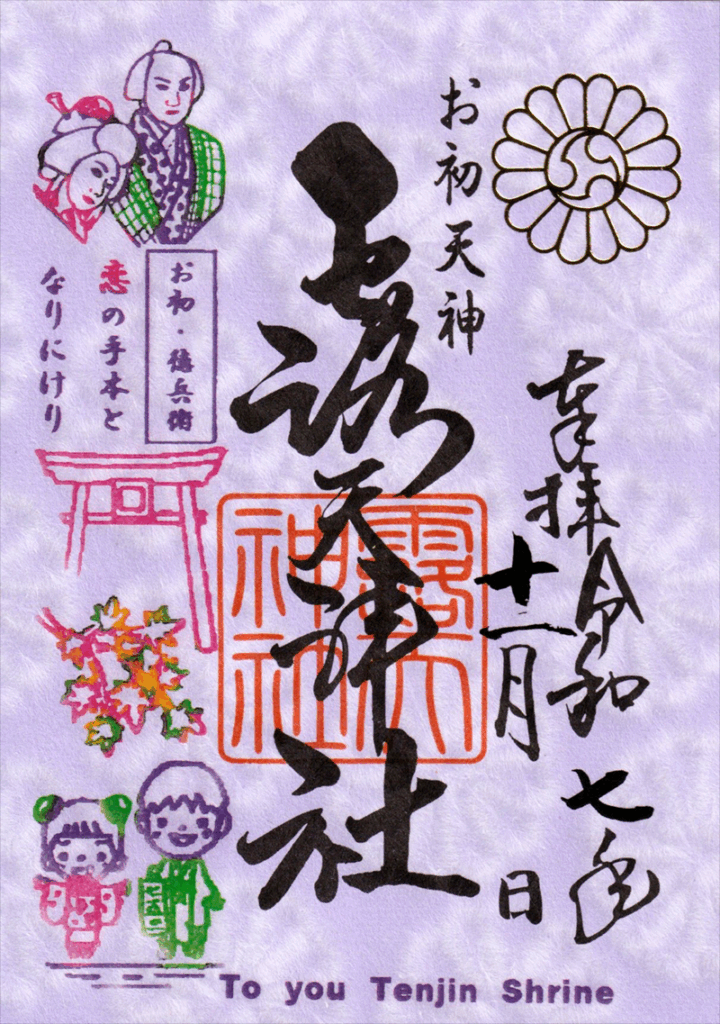 奉拝 令和七年
十一月 日
お初天神
露天神社
露天
神社
お初・徳兵衛
恋の手本と
なりにけり
To you Tenjin Shrine